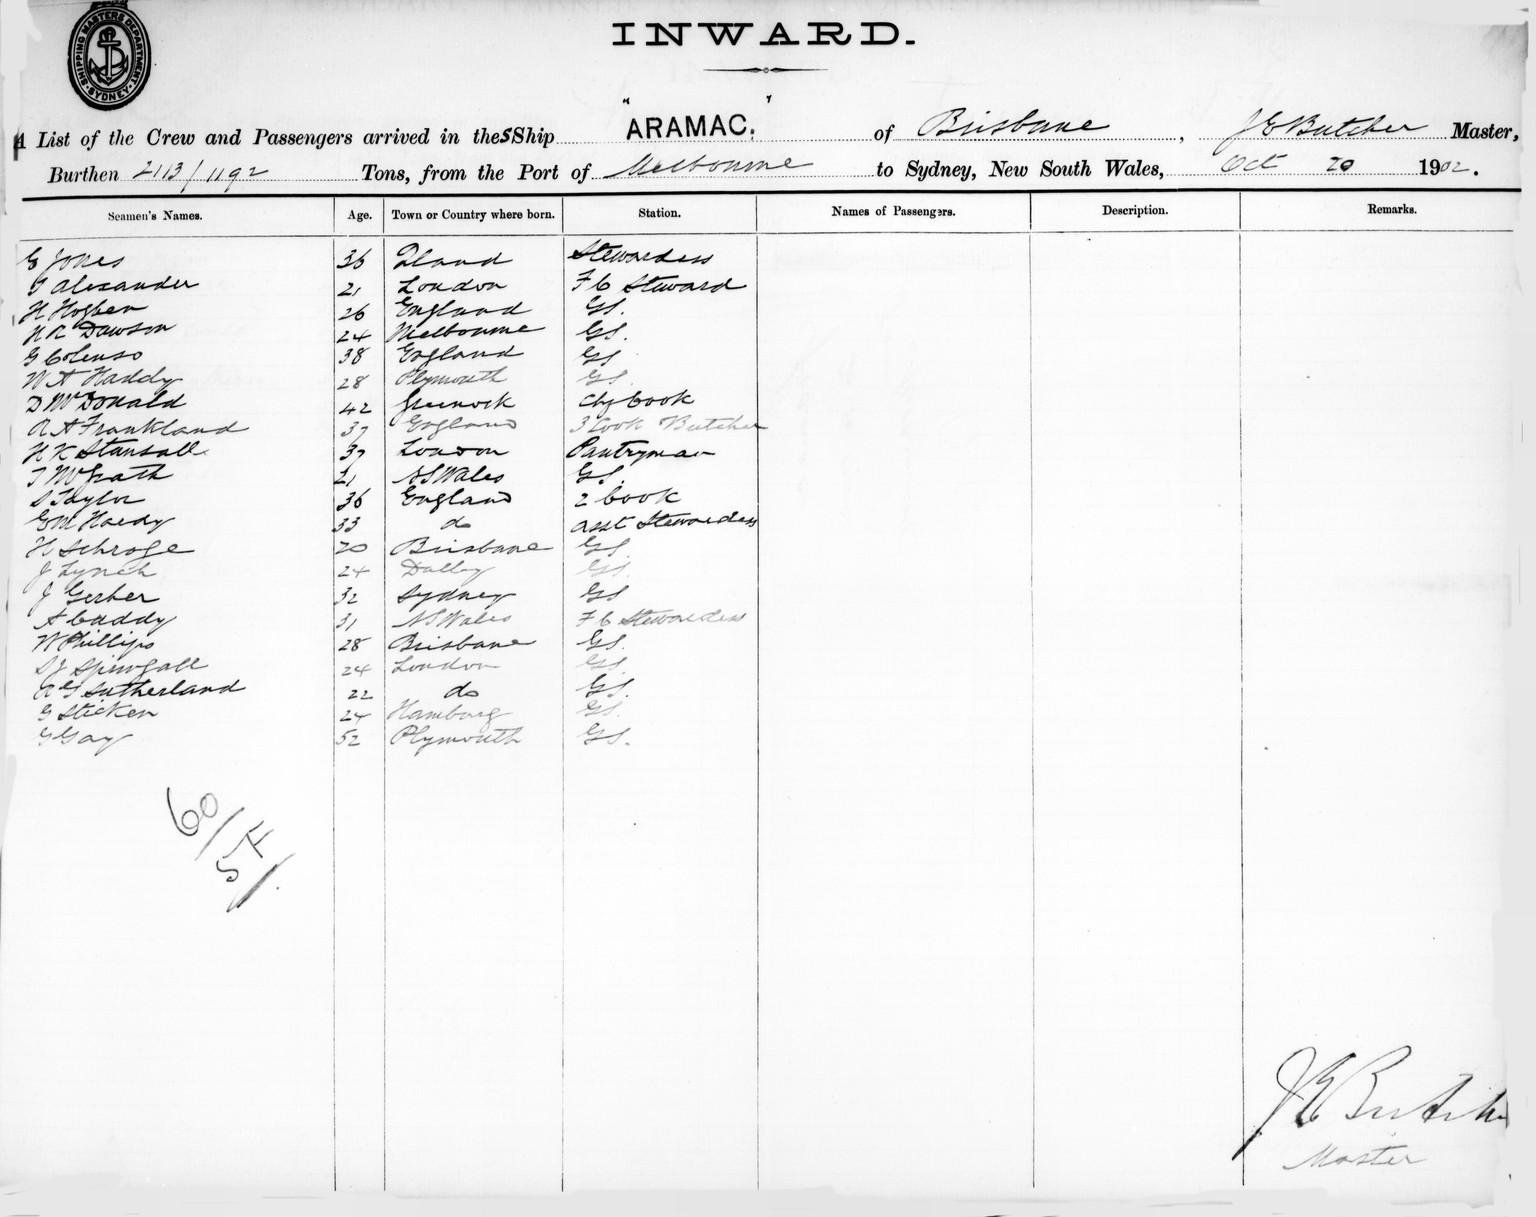 SHIPPING MASTERS DEPARTMENT
SYDNEY
INWARD.
A List of the Crew and Passengers arrived in the SShip "ARAMAC." of Brisbane, J E Butcher Master,
Burthen 2113/1192 Tons, from the Port of Melbourne to Sydney, New South Wales, Oct 20 1902.
Seamen's Names. Age. Town or Country where born. Station. Names of Passengers. Description. Remarks.
E Jones 36 Stewardess
T Alexander 21 London F C Steward
H Hogben 26 England GS.
H R Dawson 24 Melbourne GS.
G Colenso 38 England GS
W A Haddy 28 Plymouth GS
D McDonald 42 Greenock Chf Cook
R A Frankland 37 England 3 Cook Butcher
H K Stansall 37 London Pantryman
T McGrath 21 N S Wales GS.
S Taylor 36 England 2 Cook
E M Hardy 33 do Asst Stewardess
H Schroge 20 Brisbane GS.
J Lynch 24 GS.
J Gerber 32 Sydney GS
A Caddy 31 N S Wales F C Stewardess
W Phillips 28 Brisbane GS.
S J Springall 24 London GS.
A G Sutherland 22 do GS.
G Sticken 24 Hamburg GS.
G Gay 52 Plymouth GS.
60/
54/.
J E Butcher
Master